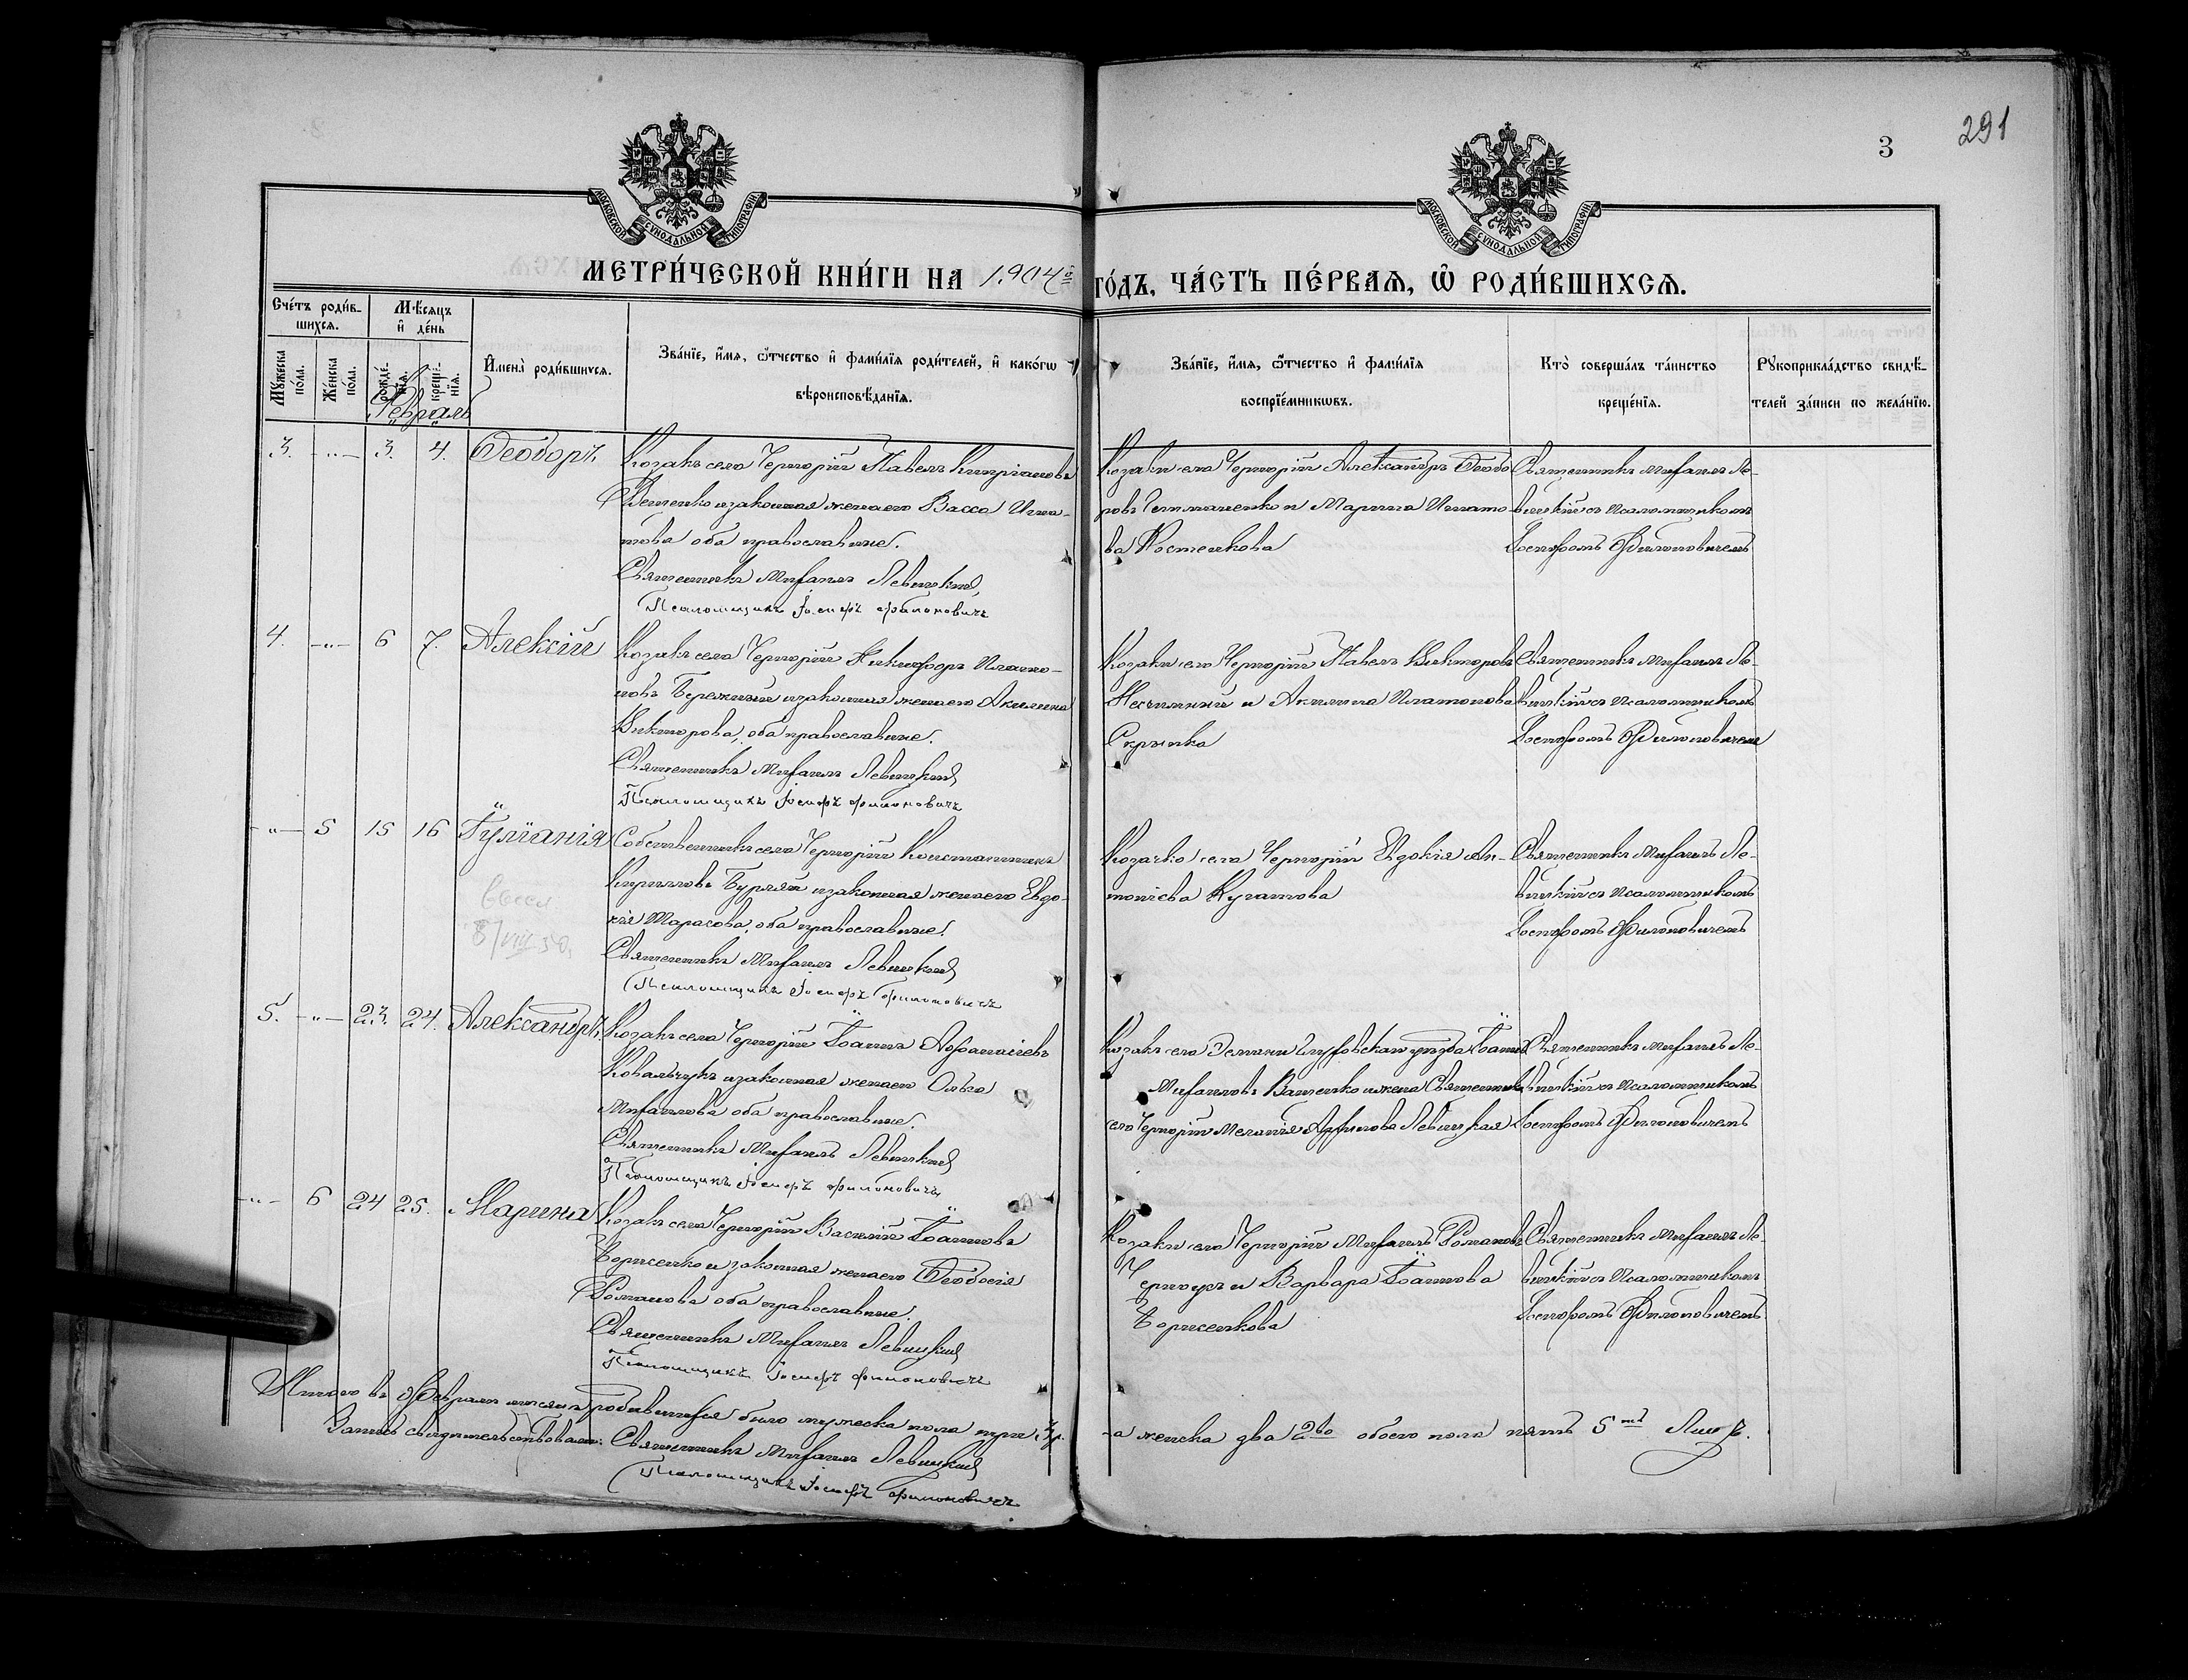 3
291
МОСКОВСКОЙ СѴНОДАЛЬНОЙ ТИПОГРАФІИ
МОСКОВСКОЙ СѴНОДАЛЬНОЙ ТИПОГРАФІИ
МЕТРИ́ЧЕСКОЙ КНИ́ГИ НА 1904й ГО́ДЪ, ЧА́СТЬ ПЕ́РВАѦ, Ѡ҆ РОДИ́ВШИХСѦ.
Сче́тъ роди́в-
шихсѧ.
Мѣ́сѧцъ
и҆ де́нь
Мꙋ́жеска
по́ла.
Же́нска
по́ла.
рожде́-
нїѧ.
креще́-
нїѧ.
И҆мена̀ роди́вшихсѧ.
Зва́нїе, и҆́мѧ, ѻ҆́тчество и҆ фамилїѧ роди́телей, и҆ како́гѡ
вѣроисповѣ́данїѧ.
Зва́нїе, и҆́мѧ, ѻ҆́тчество и҆ фами́лїѧ
воспрїе́мникѡвъ.
Кто̀ соверша́лъ та́инство
креще́нїѧ.
Рꙋкоприкла́дство свидѣ́-
телей за́писи по жела́нїю.
Февраль
3. -"- 3. 4. Ѳеодоръ
Козакъ села Черторіи Павелъ Кипріановъ
и законная жена его Васса Игна-
това оба православные.
Священникъ Михаилъ Левицкій
Псаломщикъ Іосифъ Филоновичъ
Козаки села Черторіи Александръ Ѳеодо-
ровъ и Марина Игнато-
ва Костенкова
Священникъ Михаилъ Ле-
вицкій съ псаломщикомъ
Іосифомъ Филоновичемъ
4. -"- 6 7. Алексій
Козакъ села Черторіи Никифоръ Плато-
новъ Бережный и законная жена его Акилина
Викторова, оба православные.
Священникъ Михаилъ Левицкій
Псаломщикъ Іосифъ Филоновичъ
Козаки села Черторіи Павелъ Викторовъ
и Акилина Платонова
Скрыпка
Священникъ Михаилъ Ле-
вицкій съ псаломщикомъ
Іосифомъ Филоновичемъ
-"- 5 15 16 Іуліанія
8/VIII 50.
Собственникъ села Черторіи Константинъ
Кирилловъ и законная жена его Евдо-
кія Тарасова, оба православные.
Священникъ Михаилъ Левицкій
Псаломщикъ Іосифъ Филоновичъ
Козачка села Черторіи Евдокія Ан-
тоніева
Священникъ Михаилъ Ле-
вицкій съ псаломщикомъ
Іосифомъ Филоновичемъ
5. -"- 23. 24. Александръ
Козакъ села Черторіи Іоаннъ Аѳанасіевъ
Ковальчукъ и законная жена его Ольга
Михаилова оба православные.
Священникъ Михаилъ Левицкій
Псаломщикъ Іосифъ Филоновичъ
Козакъ села Эсмани Глуховскаго уѣзда Іоаннъ
Михаиловъ Ващенко и жена Священника
села Черторіи Меланія Левицкая
Священникъ Михаилъ Ле-
вицкій съ псаломщикомъ
Іосифомъ Филоновичемъ
-"- 6 24 25. Марина
Козакъ села Черторіи Василій Іоанновъ
Борисенко и законная жена его Ѳеодосія
Романова оба православные.
Священникъ Михаилъ Левицкій
Псаломщикъ Іосифъ Филоновичъ
Козаки села Черторіи Михаилъ Романовъ
и Варвара Іоаннова
Борисенкова
Священникъ Михаилъ Ле-
вицкій съ псаломщикомъ
Іосифомъ Филоновичемъ
Итого въ Февралѣ мѣсяцѣ родившихся было мужеска пола три 3 а женска два 2ва обоего пола пять 5ть
Запись свидѣтельствовали: Священникъ Михаилъ Левицкій
Псаломщикъ Іосифъ Филоновичъ